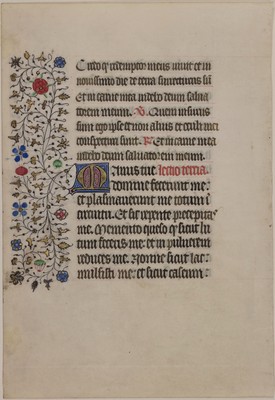 Credo q redemptor meus vivit et in
novissimo die de terra surrecturus sū
Et in carne mea videbo deum salva
torem meum. V. Quem visurus
sum ego ipse et non alius et oculi mei
conspecturi sunt. R. Et in carne mea
videbo deum salvatorem meum.
Manus tue lectio tercia
domine fecerunt me:
et plasmaverunt me totum i
circuitu. Et sic repente precipitas
me. Memento queso q sicut lu
tum feceris me: et in pulverem
reduces me. Nonne sicut lac
mulsisti me: et sicut caseum